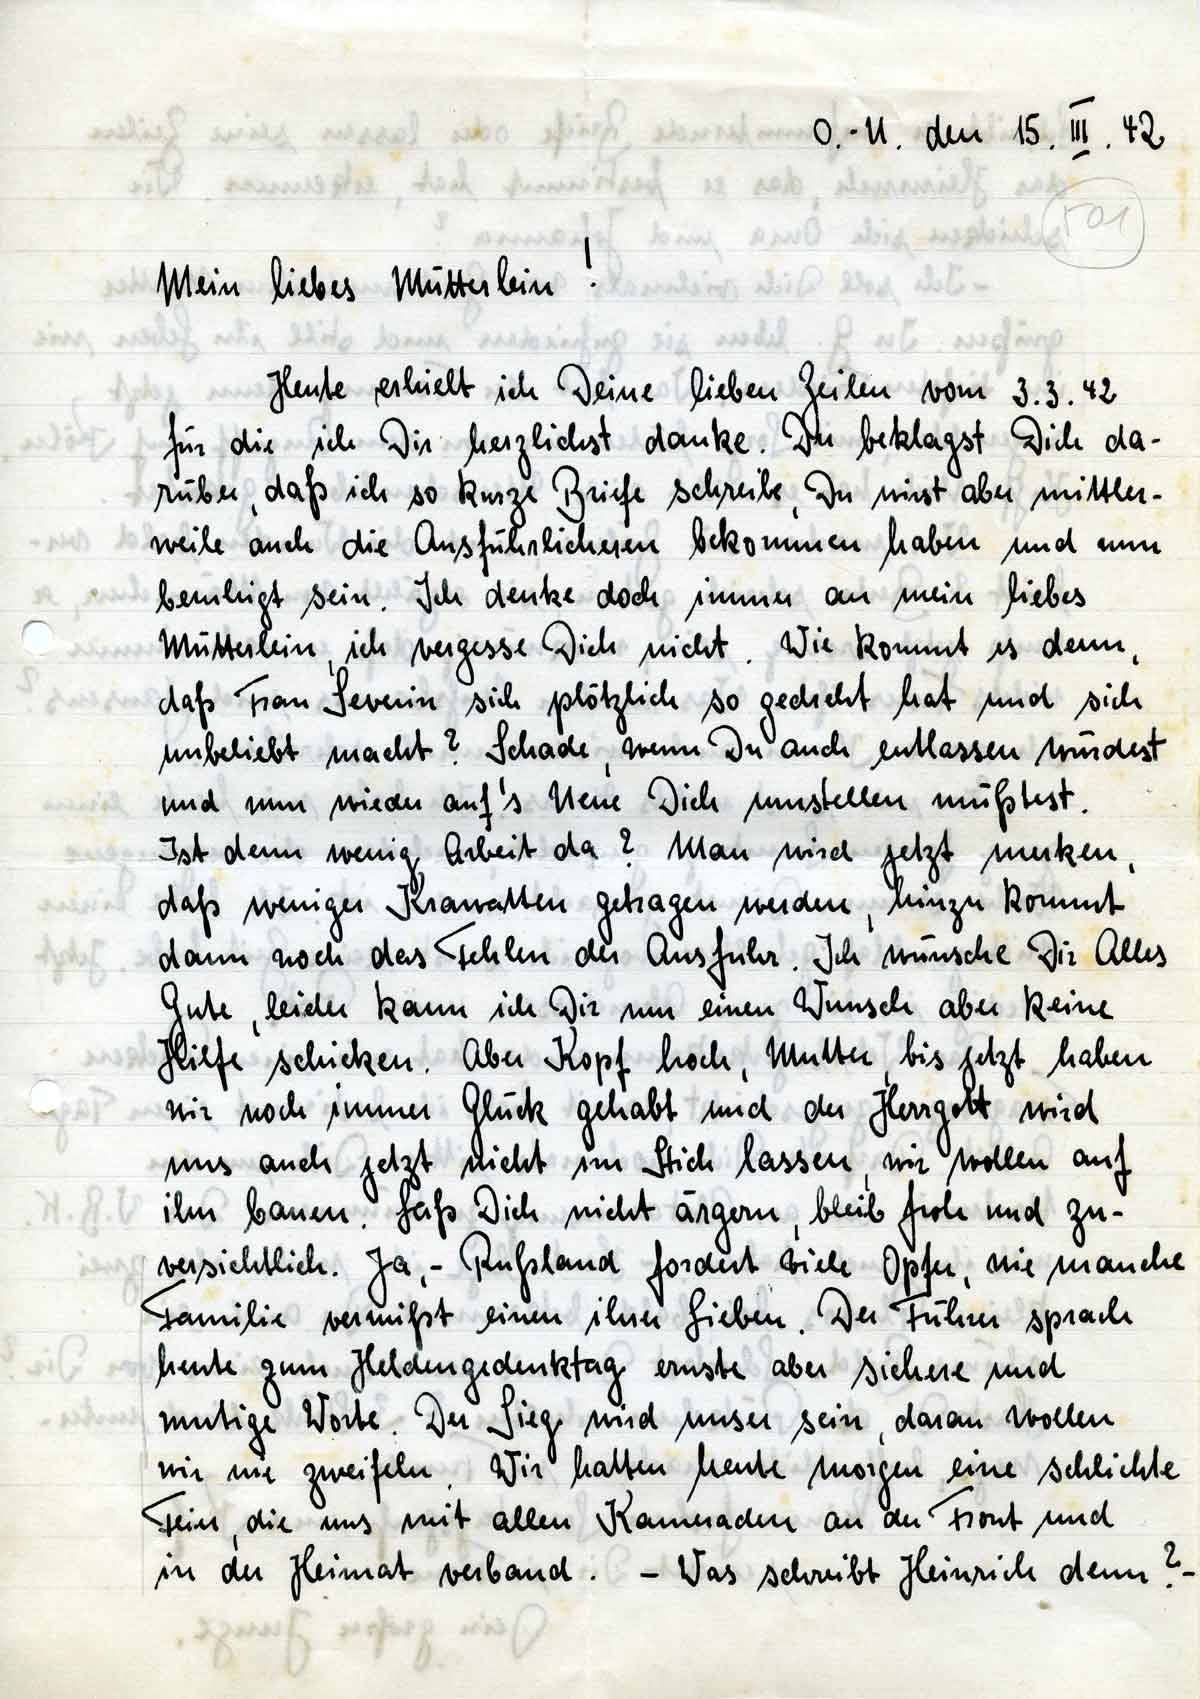 O.-U. den 15. III. 42
501
Mein liebes Mütterlein!
Heute erhielt ich Deine lieben Zeilen vom 3.3.42
für die ich Dir herzlichst danke. Du beklagst Dich da-
rüber, daß ich so kurze Briefe schreibe, Du wirst aber mittler-
weile auch die Ausführlicheren bekommen haben und nun
beruhigt sein. Ich denke doch immer an mein liebes
Mütterlein, ich vergesse Dich nicht. Wie kommt es denn,
daß Frau Severin sich plötzlich so gedreht hat und sich
unbeliebt macht? Schade, wenn Du auch entlassen würdest
und nun wieder auf's Neue Dich umstellen müßtest.
Ist denn wenig Arbeit da? Man wird jetzt merken,
daß weniger Krawatten getragen werden, hinzu kommt
dann noch das Fehlen der Ausfuhr. Ich wünsche Dir Alles
Gute, leider kann ich Dir nur einen Wunsch aber keine
Hilfe schicken. Aber Kopf hoch, Mutter, bis jetzt haben
wir noch immer Glück gehabt und der Herrgott wird
uns auch jetzt nicht im Stich lassen, wir wollen auf
ihn bauen. Laß Dich nicht ärgern, bleib froh und zu-
versichtlich. Ja, - Rußland fordert viele Opfer, wie manche
Familie vermißt einen ihrer Lieben. Der Führer sprach
heute zum Heldengedenktag ernste aber sichere und
mutige Worte. Der Sieg wird unser sein, daran wollen
wir nie zweifeln. Wir hatten heute morgen eine schlichte
Feier, die uns mit allen Kameraden an der Front und
in der Heimat verband. - Was schreibt Heinrich denn? -